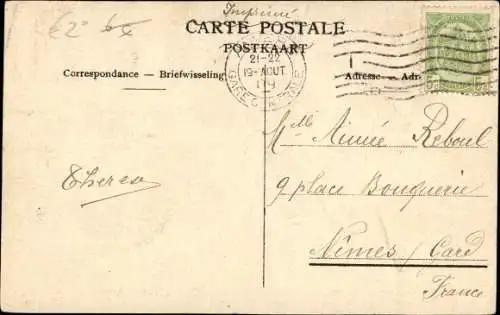 Imprimé
€2⁰
CARTE POSTALE
POSTKAART
21-22
19-AOUT
09
GARE CENTRALE
Correspondance — Briefwisseling
Adresse — Adr
Mlle Aimée Reboul
Thereo
9 place Bouquerie
Nîmes/Gard
France